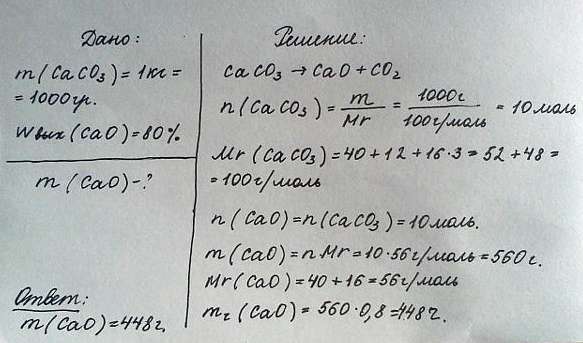 Дано:
m(CaCO3) = 1кг =
= 1000гр.
Wвых (CaO) = 80%
m(CaO) - ?
Ответ:
m(CaO) = 448г.
Решение:
CaCO3 → CaO + CO2
n(CaCO3) = m/Mr = 1000г/100г/моль = 10 моль
Mr(CaCO3) = 40 + 12 + 16·3 = 52 + 48 =
= 100г/моль
n(CaO) = n(CaCO3) = 10 моль.
m(CaO) = n Mr = 10·56г/моль = 560г.
Mr(CaO) = 40 + 16 = 56г/моль
m₂(CaO) = 560·0,8 = 448г.